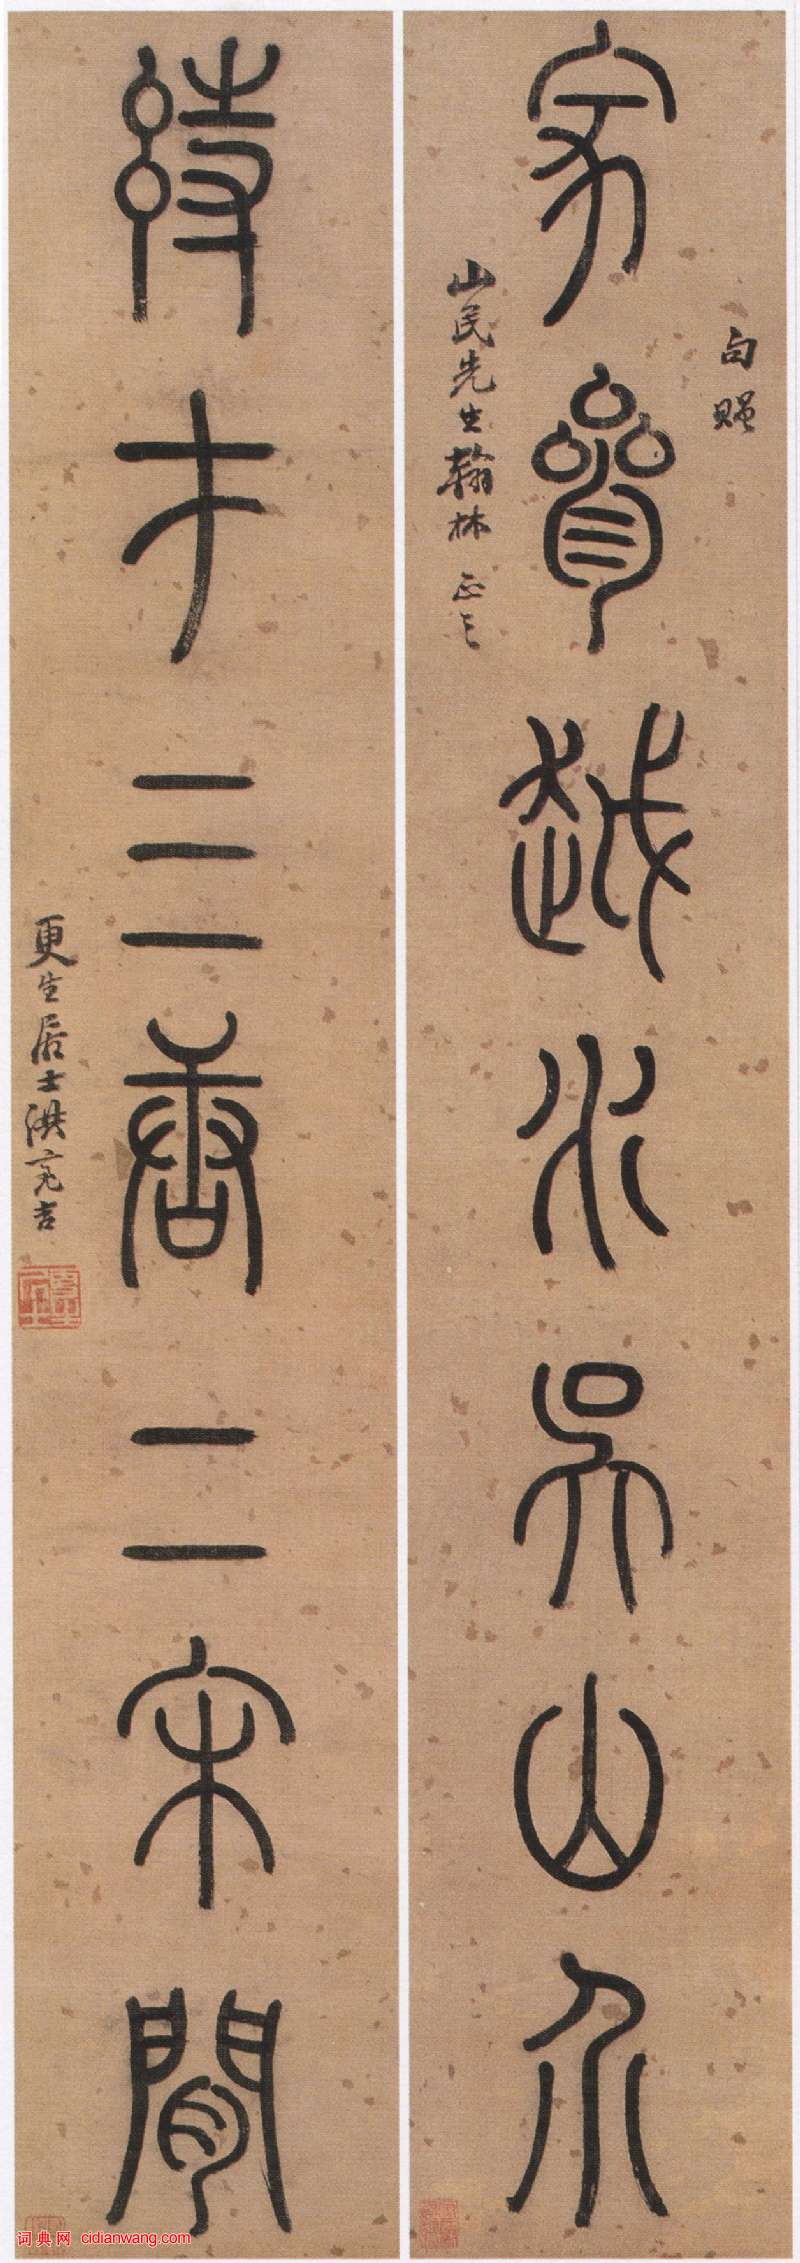 句贈
參越水吳山介
山民先生翰林正之
才三唐二宋間
更生居士洪亮吉
词典网 cidianwang.com